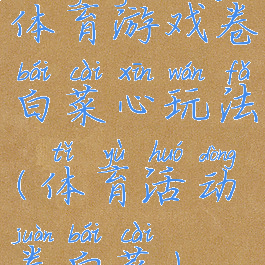 体育游戏卷
bái cài xīn wán fǎ
白菜心玩法
tǐ yù huó dòng
(体育活动
juàn bái cài
卷白菜)